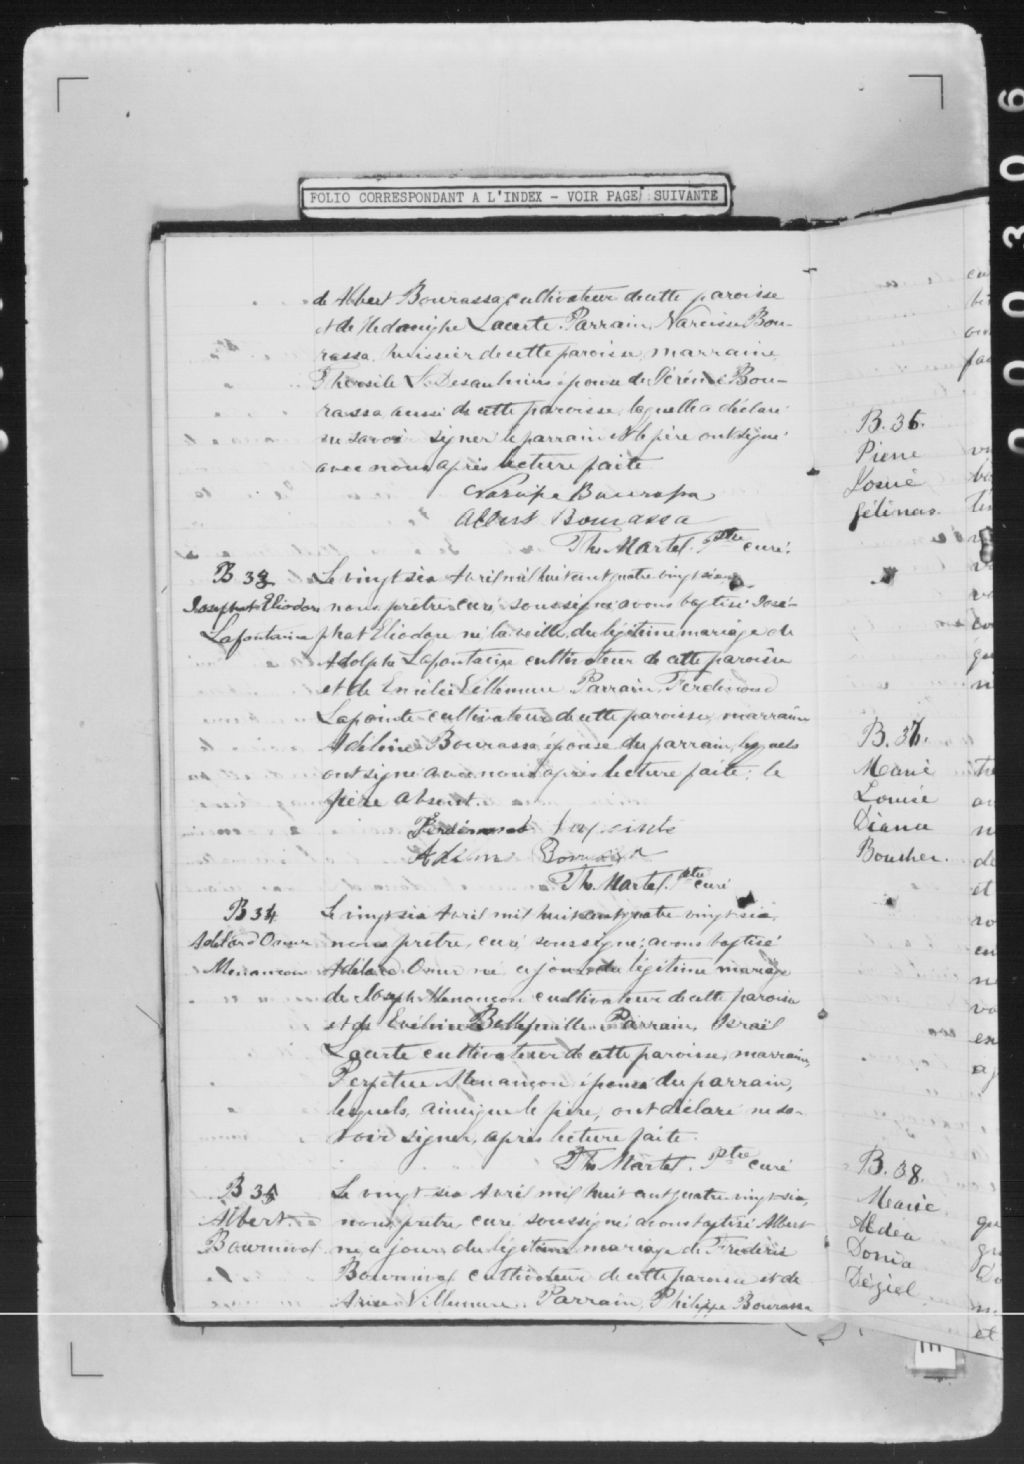 FOLIO CORRESPONDANT A L'INDEX - VOIR PAGE SUIVANTE
de Albert Bourassa, cultivateur de cette paroisse
et de Hedwige Lacerte. Parrain, Narcisse Bou-
rassa, huissier de cette paroisse, marraine,
L. Desaulniers épouse de Bou-
rassa aussi de cette paroisse, laquelle a déclaré
ne savoir signer le parrain et le père ont signé
avec nous après lecture faite
Bourassa
Albert Bourassa
Th. Martel. Ptre curé.
B 33
Josaphat Eliodore
Lafontaine
Le vingt-six Avril mil huit cent quatre vingt-six
nous prêtre curé soussigné avons baptisé José-
phat Eliodore né la veille, du légitime mariage de
Adolphe Lafontaine cultivateur de cette paroisse
et de Emilie Villemure Parrain, Ferdinand
Lapointe cultivateur de cette paroisse, marraine
Adeline Bourassa épouse du parrain, lesquels
ont signé avec nous après lecture faite; le
père absent.
Ferdinand Lapointe
Bourassa
Th. Martel. Ptre curé
B 34
Adélard Omer
Menançon
Le vingt-six Avril mil huit cent quatre vingt-six,
nous prêtre, curé soussigné, avons baptisé
Adélard Omer né ce jour du légitime mariage
de Joseph Menançon cultivateur de cette paroisse
et de Bellefeuille. Parrain, Israël
Lacerte cultivateur de cette paroisse, marraine,
Perpétue Menançon épouse du parrain,
lesquels, ainsi que le père, ont déclaré ne sa-
voir signer, après lecture faite.
Th. Martel. Ptre curé
B 35
Albert
Bournival
Le vingt-six Avril mil huit cent quatre vingt-six,
nous, prêtre, curé soussigné avons baptisé Albert
né ce jour du légitime mariage de Frédéric
Bournival cultivateur de cette paroisse et de
Villemure. Parrain, Philippe Bourassa
B. 36.
Pierre
Josué
Gélinas.
B. 37.
Marie
Louise
Diana
Boucher.
B. 38.
Marie
Aldéa
Donia
Déziel